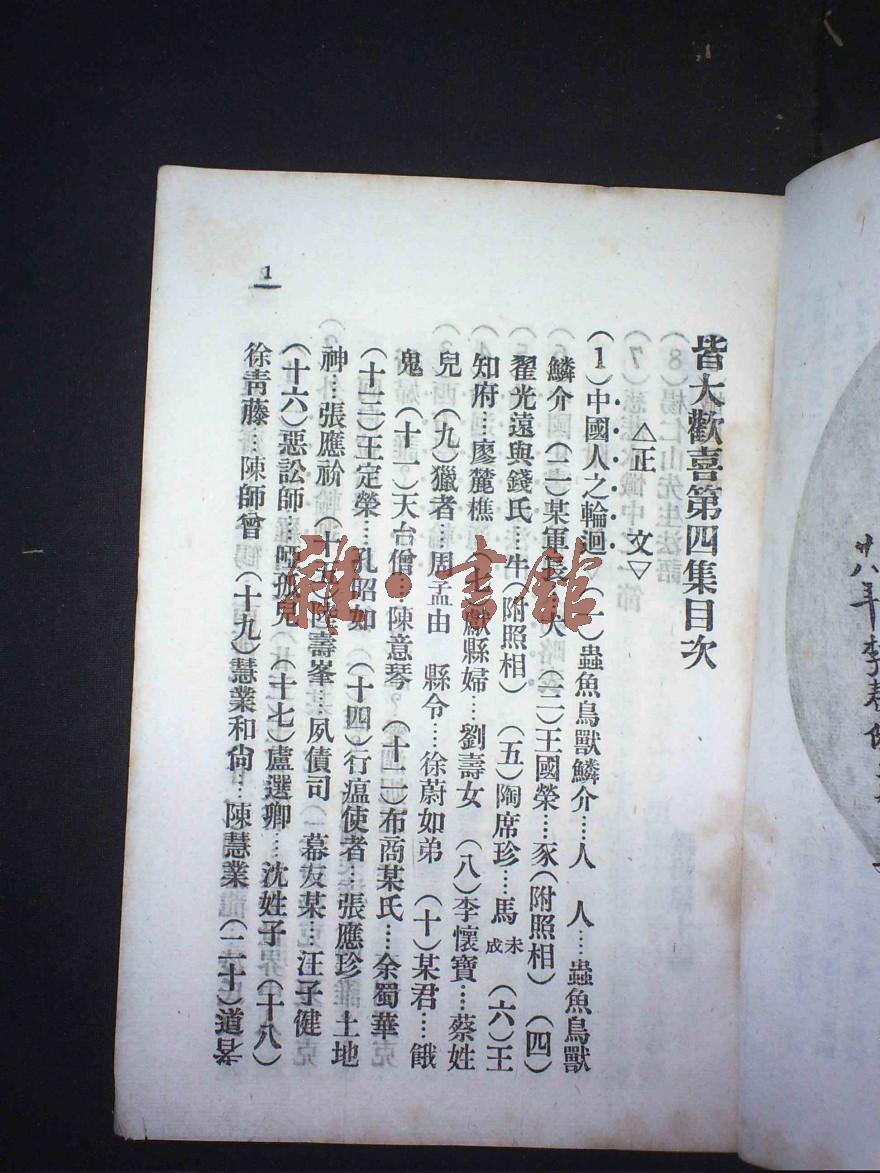 皆大歡喜第四集目次
△正　文▽
（1）中國人之輪迴　（一）蟲魚鳥獸鱗介…人　人…蟲魚鳥獸
鱗介　（二）某軍長…犬　（三）王國榮…豕（附照相）　（四）
翟光遠與錢氏…牛（附照相）　（五）陶席珍…馬未成　（六）王
知府…廖麓樵　（七）獻縣婦…劉壽女　（八）李懷寶…蔡姓
兒　（九）獵者…周孟由　縣令…徐蔚如弟　（十）某君…餓
鬼　（十一）天台僧…陳意琴　（十二）布商某氏…余蜀華
（十三）王定榮…孔昭如　（十四）行瘟使者…張應珍　土地
神…張應衸　（十五）陸壽峯…夙債司　幕友某…汪子健
（十六）惡訟師…啞孤兒　（十七）盧選卿…沈姓子　（十八）
徐青藤…陳師曾　（十九）慧業和尙…陳慧業　（二十）道者
1
雜·書館
廿八年李春